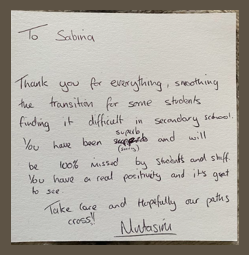 To Sabina
Thank you for everything, smoothing
the transition for some students
finding it difficult in secondary school.
superb
You have been and will
(sorry)
be 100% missed by students and staff.
You have a real positivity and it's great
to see.
Take care and hopefully our paths
cross!!